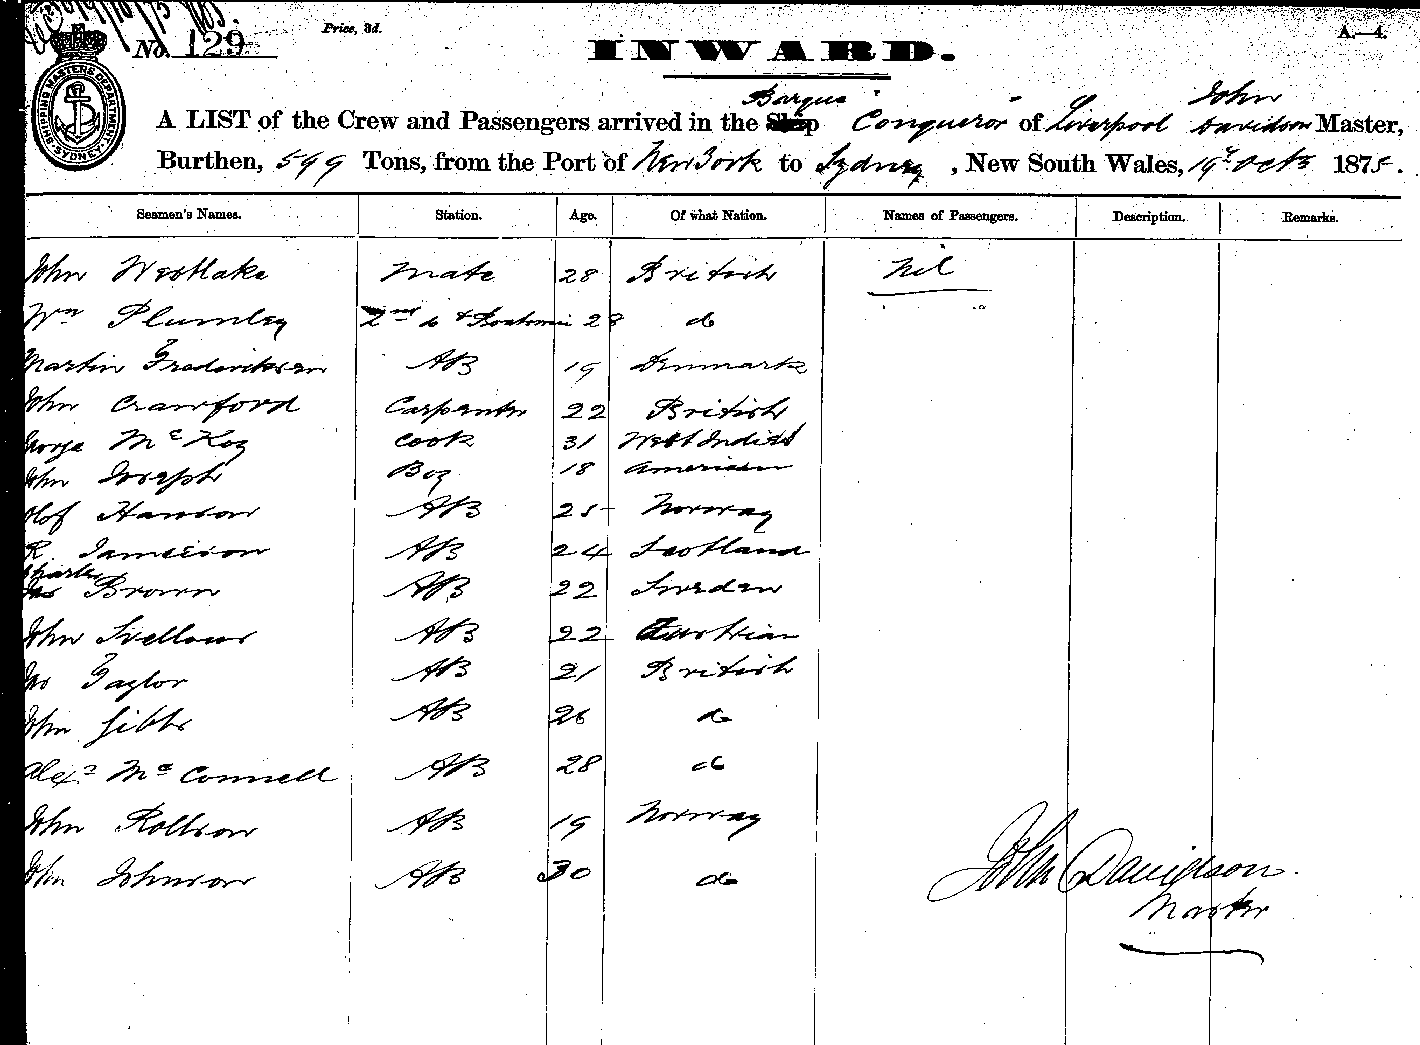 No. 129
Price, 3d.
A.—4.
INWARD.
SHIPPING MASTERS DEPARTMENT SYDNEY
Barque
John
A LIST of the Crew and Passengers arrived in the Ship Conqueror of Liverpool Davidson Master,
Burthen, 599 Tons, from the Port of New York to Sydney, New South Wales, 19th Octr 1875.
Seamen's Names. Station. Age. Of what Nation. Names of Passengers. Description. Remarks.
John Westlake Mate 28 British Nil
Wm Plumley 2nd do & Boatswain 28 do
Martin Frederiksen AB 19 Denmark
John Crawford Carpenter 22 British
George McKoy Cook 31 West Indies
John Joseph Boy 18 American
Olof Hanson AB 25 Norway
R. Jamieson AB 24 Scotland
Charles
Jas Brown AB 22 Sweden
John AB 22 Austrian
Jas Taylor AB 21 British
John Gibbs AB 26 do
Alexr McConnell AB 28 do
John Rollson AB 19 Norway
John Johnson AB 30 do
John Davidson
Master